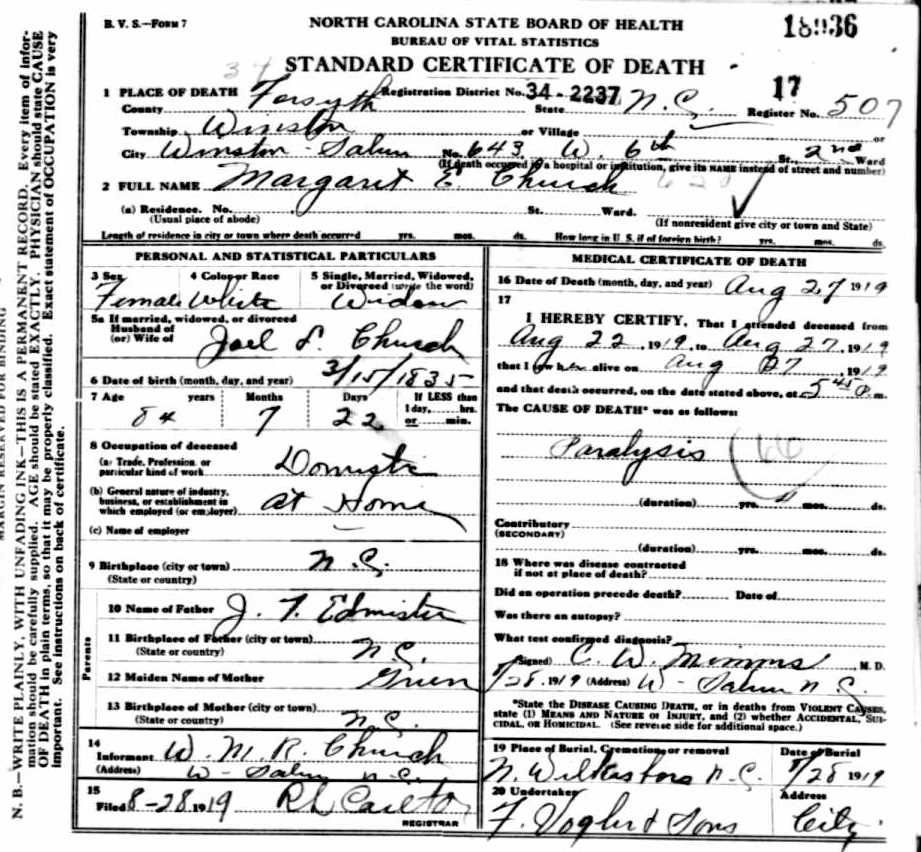 B. V. S.—FORM 7
NORTH CAROLINA STATE BOARD OF HEALTH
BUREAU OF VITAL STATISTICS
STANDARD CERTIFICATE OF DEATH
18936
1 PLACE OF DEATH Registration District No. 34-2237 17
County Forsyth State N. C. Register No. 507
Township Winston or Village or
City Winston-Salem No. 643 W. 6th St. 2nd Ward
(If death occurred in a hospital or institution, give its NAME instead of street and number)
2 FULL NAME Margaret E Church
(a) Residence. No. St. Ward.
(Usual place of abode) (If nonresident give city or town and State)
Length of residence in city or town where death occurred yrs. mos. ds. How long in U. S. if of foreign birth? yrs. mos. ds.
PERSONAL AND STATISTICAL PARTICULARS
3 Sex 4 Color or Race 5 Single, Married, Widowed, or Divorced (write the word)
Female White Widow
5a If married, widowed, or divorced
Husband of
(or) Wife of Joel L. Church
6 Date of birth (month, day, and year) 3/15/1835
7 Age years Months Days If LESS than
1 day, hrs.
or min.
84 7 22
8 Occupation of deceased
(a) Trade, Profession, or
particular kind of work Domestic
(b) General nature of industry,
business, or establishment in
which employed (or employer) at Home
(c) Name of employer
9 Birthplace (city or town) N. C.
(State or country)
Parents
10 Name of Father J. T. Edmister
11 Birthplace of Father (city or town)
(State or country) N. C.
12 Maiden Name of Mother Green
13 Birthplace of Mother (city or town)
(State or country) N.C.
14
Informant W. M. R. Church
(Address) W-Salem N.C.
15
Filed 8-28 1919
REGISTRAR
MEDICAL CERTIFICATE OF DEATH
16 Date of Death (month, day, and year) Aug 27 1919
17
I HEREBY CERTIFY, That I attended deceased from
Aug 22, 1919, to Aug 27, 1919
that I saw her alive on Aug 27, 1919
and that death occurred, on the date stated above, at 5 45 P. m.
The CAUSE OF DEATH* was as follows:
Paralysis
(duration) yrs. mos. ds.
Contributory
(SECONDARY)
(duration) yrs. mos. ds.
18 Where was disease contracted
if not at place of death?
Did an operation precede death? Date of
Was there an autopsy?
What test confirmed diagnosis?
(Signed) C. W. Mimms, M. D.
8/28, 1919 (Address) W-Salem N. C.
*State the DISEASE CAUSING DEATH, or in deaths from VIOLENT CAUSES,
state (1) MEANS AND NATURE OF INJURY, and (2) whether ACCIDENTAL, SUI-
CIDAL, OR HOMICIDAL. (See reverse side for additional space.)
19 Place of Burial, Cremation, or removal Date of Burial
N. Wilkesboro N. C. 8/28 1919
20 Undertaker Address
F. Vogler & Sons City
MARGIN RESERVED FOR BINDING
N. B.—WRITE PLAINLY, WITH UNFADING INK—THIS IS A PERMANENT RECORD. Every item of infor-
mation should be carefully supplied. AGE should be stated EXACTLY. PHYSICIAN should state CAUSE
OF DEATH in plain terms, so that it may be properly classified. Exact statement of OCCUPATION is very
important. See instructions on back of certificate.